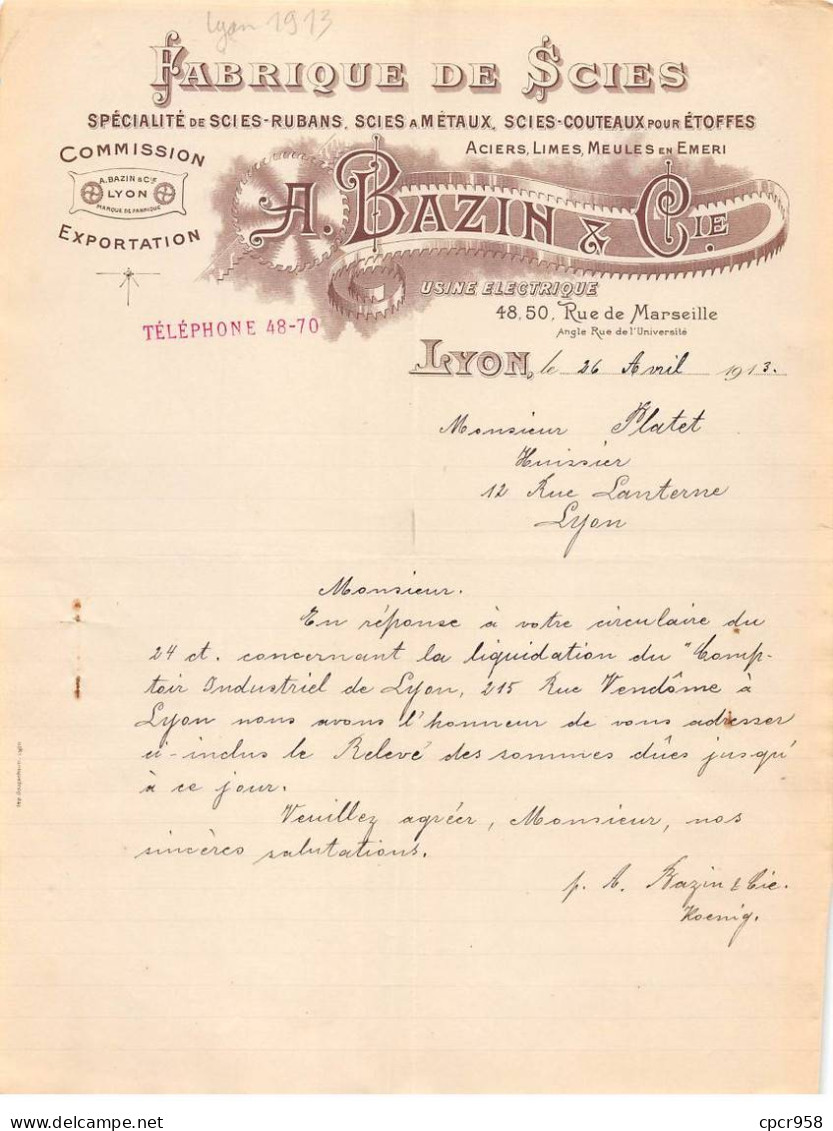 Lyon 1913
FABRIQUE DE SCIES
SPÉCIALITÉ DE SCIES-RUBANS, SCIES A MÉTAUX, SCIES-COUTEAUX POUR ÉTOFFES
ACIERS, LIMES, MEULES EN EMERI
COMMISSION
A. BAZIN & CIE
LYON
MARQUE DE FABRIQUE
EXPORTATION
A. BAZIN & CIE.
USINE ELECTRIQUE
48, 50, Rue de Marseille
Angle Rue de l'Université
TÉLÉPHONE 48-70
LYON, le 26 Avril 1913.
Monsieur Platet
Huissier
12 Rue Lanterne
Lyon
Monsieur.
En réponse à votre circulaire du
24 ct. concernant la liquidation du "Comp-
toir Industriel de Lyon, 215 Rue Vendôme à
Lyon nous avons l'honneur de vous adresser
ci-inclus le Relevé des sommes dûes jusqu'
à ce jour.
Veuillez agréer, Monsieur, nos
sincères salutations.
p. A. Bazin & Cie.
Koenig.
cpcr958